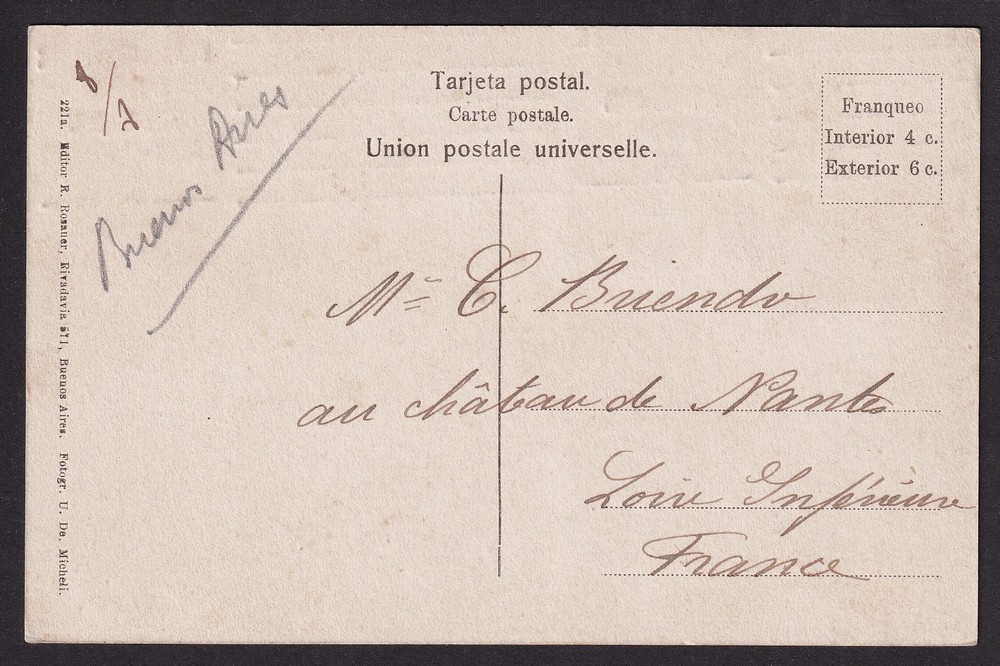 Tarjeta postal.
Carte postale.
Union postale universelle.
Franqueo
Interior 4 c.
Exterior 6 c.
8/7
Buenos Aires
221a. Editor R. Rosauer, Rivadavia 571, Buenos Aires. Fotogr. U. De. Micheli.
Mr C. Briendo
au château de Nantes
Loire Inférieure
France